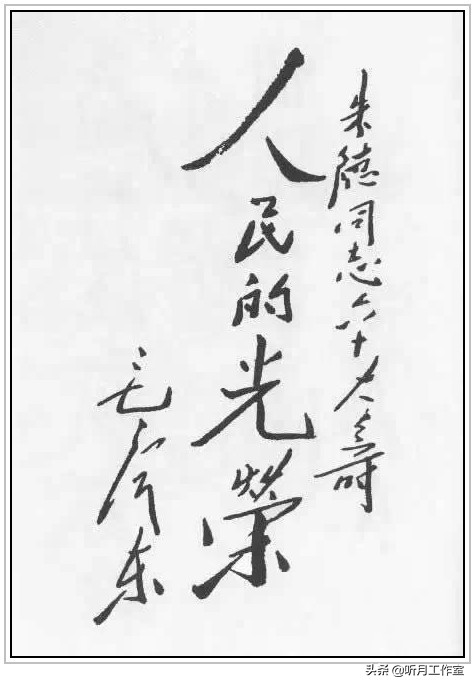 朱德同志六十大寿
人民的光榮
毛泽东
头条 @听月工作室